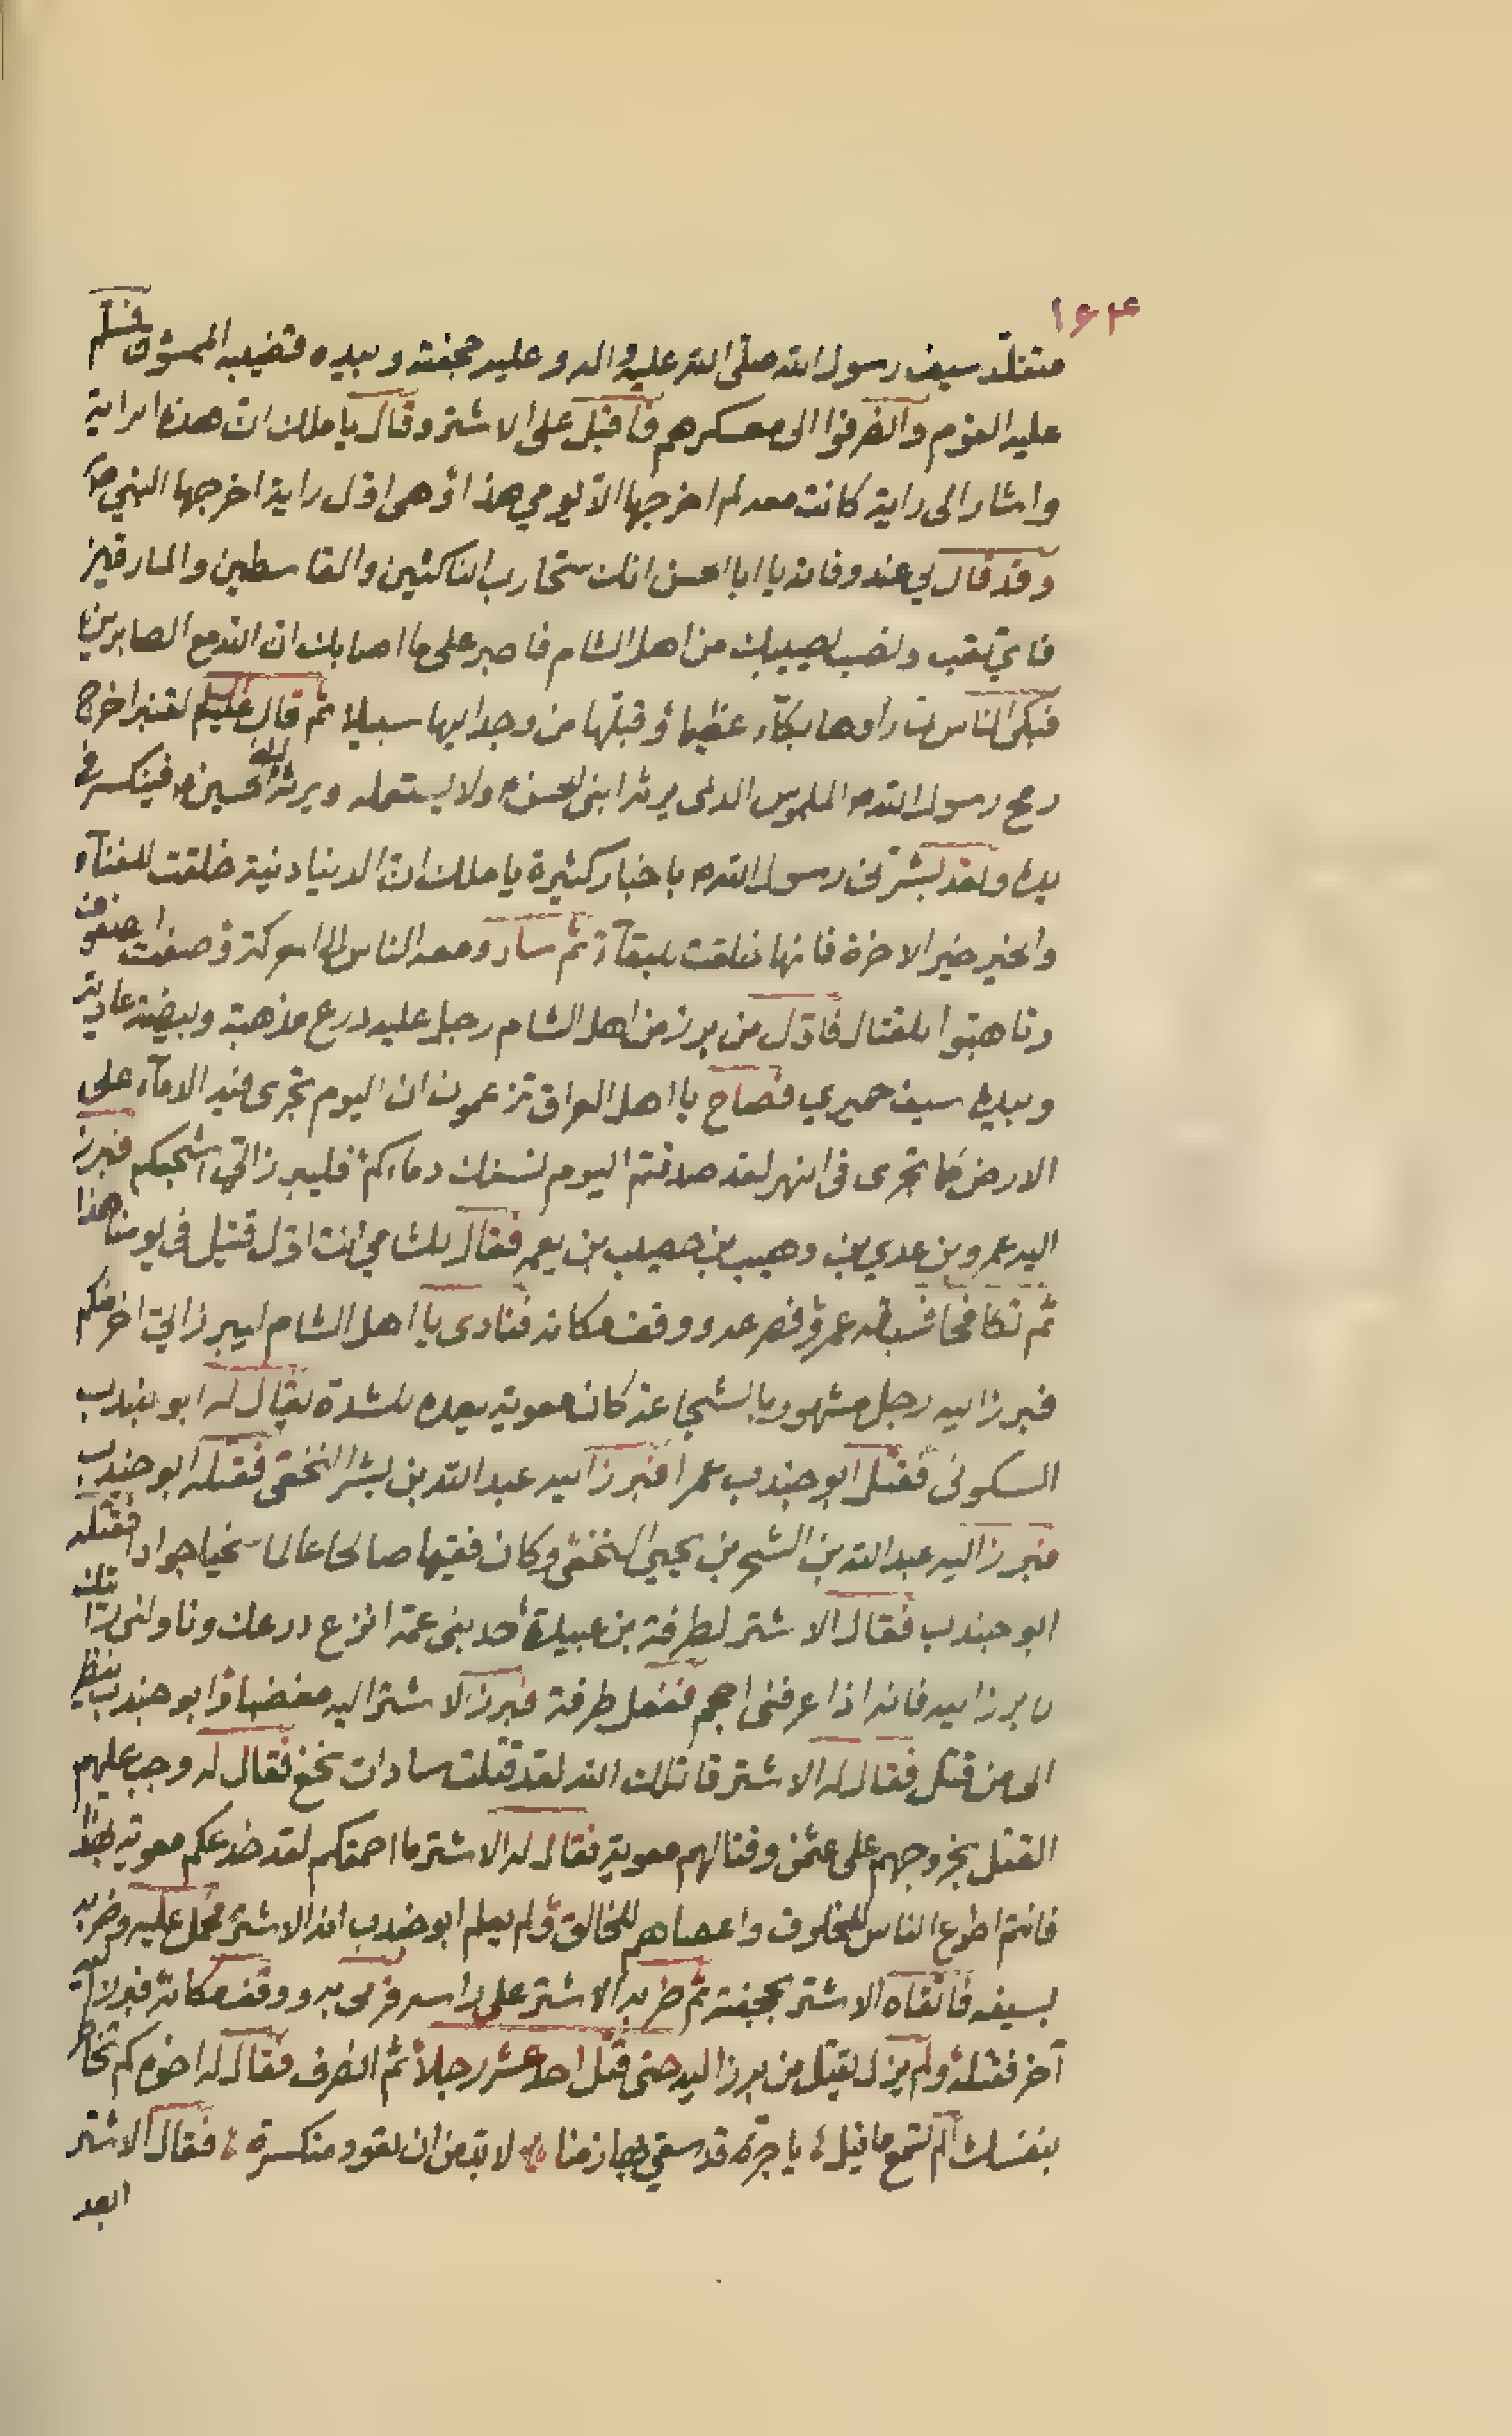 ۱۶۴
متقلّد سيف رسول الله صلّى الله عليه واله وعليه حجفته وبيده قضيبه الممشوق فسلم
عليه القوم وانصرفوا الى معسكرهم فاقبل على الاشتر وقال يا مالك ان هذه الراية
واشار الى راية كانت معه لم اخرجها الا يومي هذا وهى اول راية اخرجها النبي ص
وقد قال لي عند وفاته يا ابا الحسن انك ستحارب الناكثين والقاسطين والمارقين
فاي تعب ونصب يصيبك من اهل الشام فاصبر على ما اصابك ان الله مع الصابرين
فبكى الناس راوها بكآء عظيما وقبلها من وجد اليها سبيلا ثم قال عليه لقنبر اخرج
رمح رسول الله الملموس الذى يرثه ابنى الحسن ولا يستعمله ويرثه الحسين فينكسر في
يده ولقد بشرنى رسول الله باخبار كثيرة يا مالك ان الدنيا دنية خلقت للفنآء
والخير خير الاخرة فانها خلقت للبقآء ثم سار ومعه الناس الى المعركة وصفت الصفوف
وتاهبوا للقتال فاول من برز من اهل الشام رجل عليه درع مذهبة وبيضة عادية
وبيده سيف حميري فصاح يا اهل العراق تزعمون ان اليوم تجرى فيه الدمآء على
الارض كما تجرى فى النهر لقد صدقتم اليوم نسفك دماءكم فليبرز الي اشجعكم فبرز
اليه عمرو بن عدي بن وهيب بن خصيب بن يعمر فقال للشامي انت اول قتيل فى يومنا هذا
ثم تكافحا فسبقه عمرو فصرعه ووقف مكانه فنادى يا اهل الشام ليبرز الي اخر منكم
فبرز اليه رجل مشهور بالشجاعة كان معوية يعده للشدة يقال له ابو جندب
السكونى فقتل ابو جندب عمرا فبرز اليه عبد الله بن بشر النخعى فقتله ابو جندب
فبرز اليه عبد الله بن الشيخ بن يحيى النخعى وكان فقيها صالحا عالما سخيا جوادا فقتله
ابو جندب فقال الاشتر لطرفة بن عبيدة احد بنى عمه انزع درعك وناولنى رايتك
لابرز اليه فانه اذا عرفنى احجم ففعل طرفة فبرز الاشتر اليه مغضبا وابو جندب ينظر
الى من قتل فقال له الاشتر قاتلك الله لقد قتلت سادات نخع فقال له وجب عليهم
القتل بخروجهم على عثمن وقتالهم معوية فقال له الاشتر ما احمقكم لقد خدعكم معوية بهذا
فانتم اطوع الناس للمخلوق واعصاهم للخالق ولم يعلم ابو جندب انه الاشتر فحمل عليه وضربه
بسيفه فاتقاه الاشتر بحجفته ثم ضربه الاشتر على راسه فرمى به ووقف مكانه فبرز اليه
آخر فقتله ولم يزل يقتل من برز اليه حتى قتل احد عشر رجلا ثم انصرف فقال له اخوه كم تخاطر
بنفسك الم تسمع ما قيل يا جرة قد سقي بها زمنا لا بد من ان تعود منكسرة فقال الاشتر
ابعد